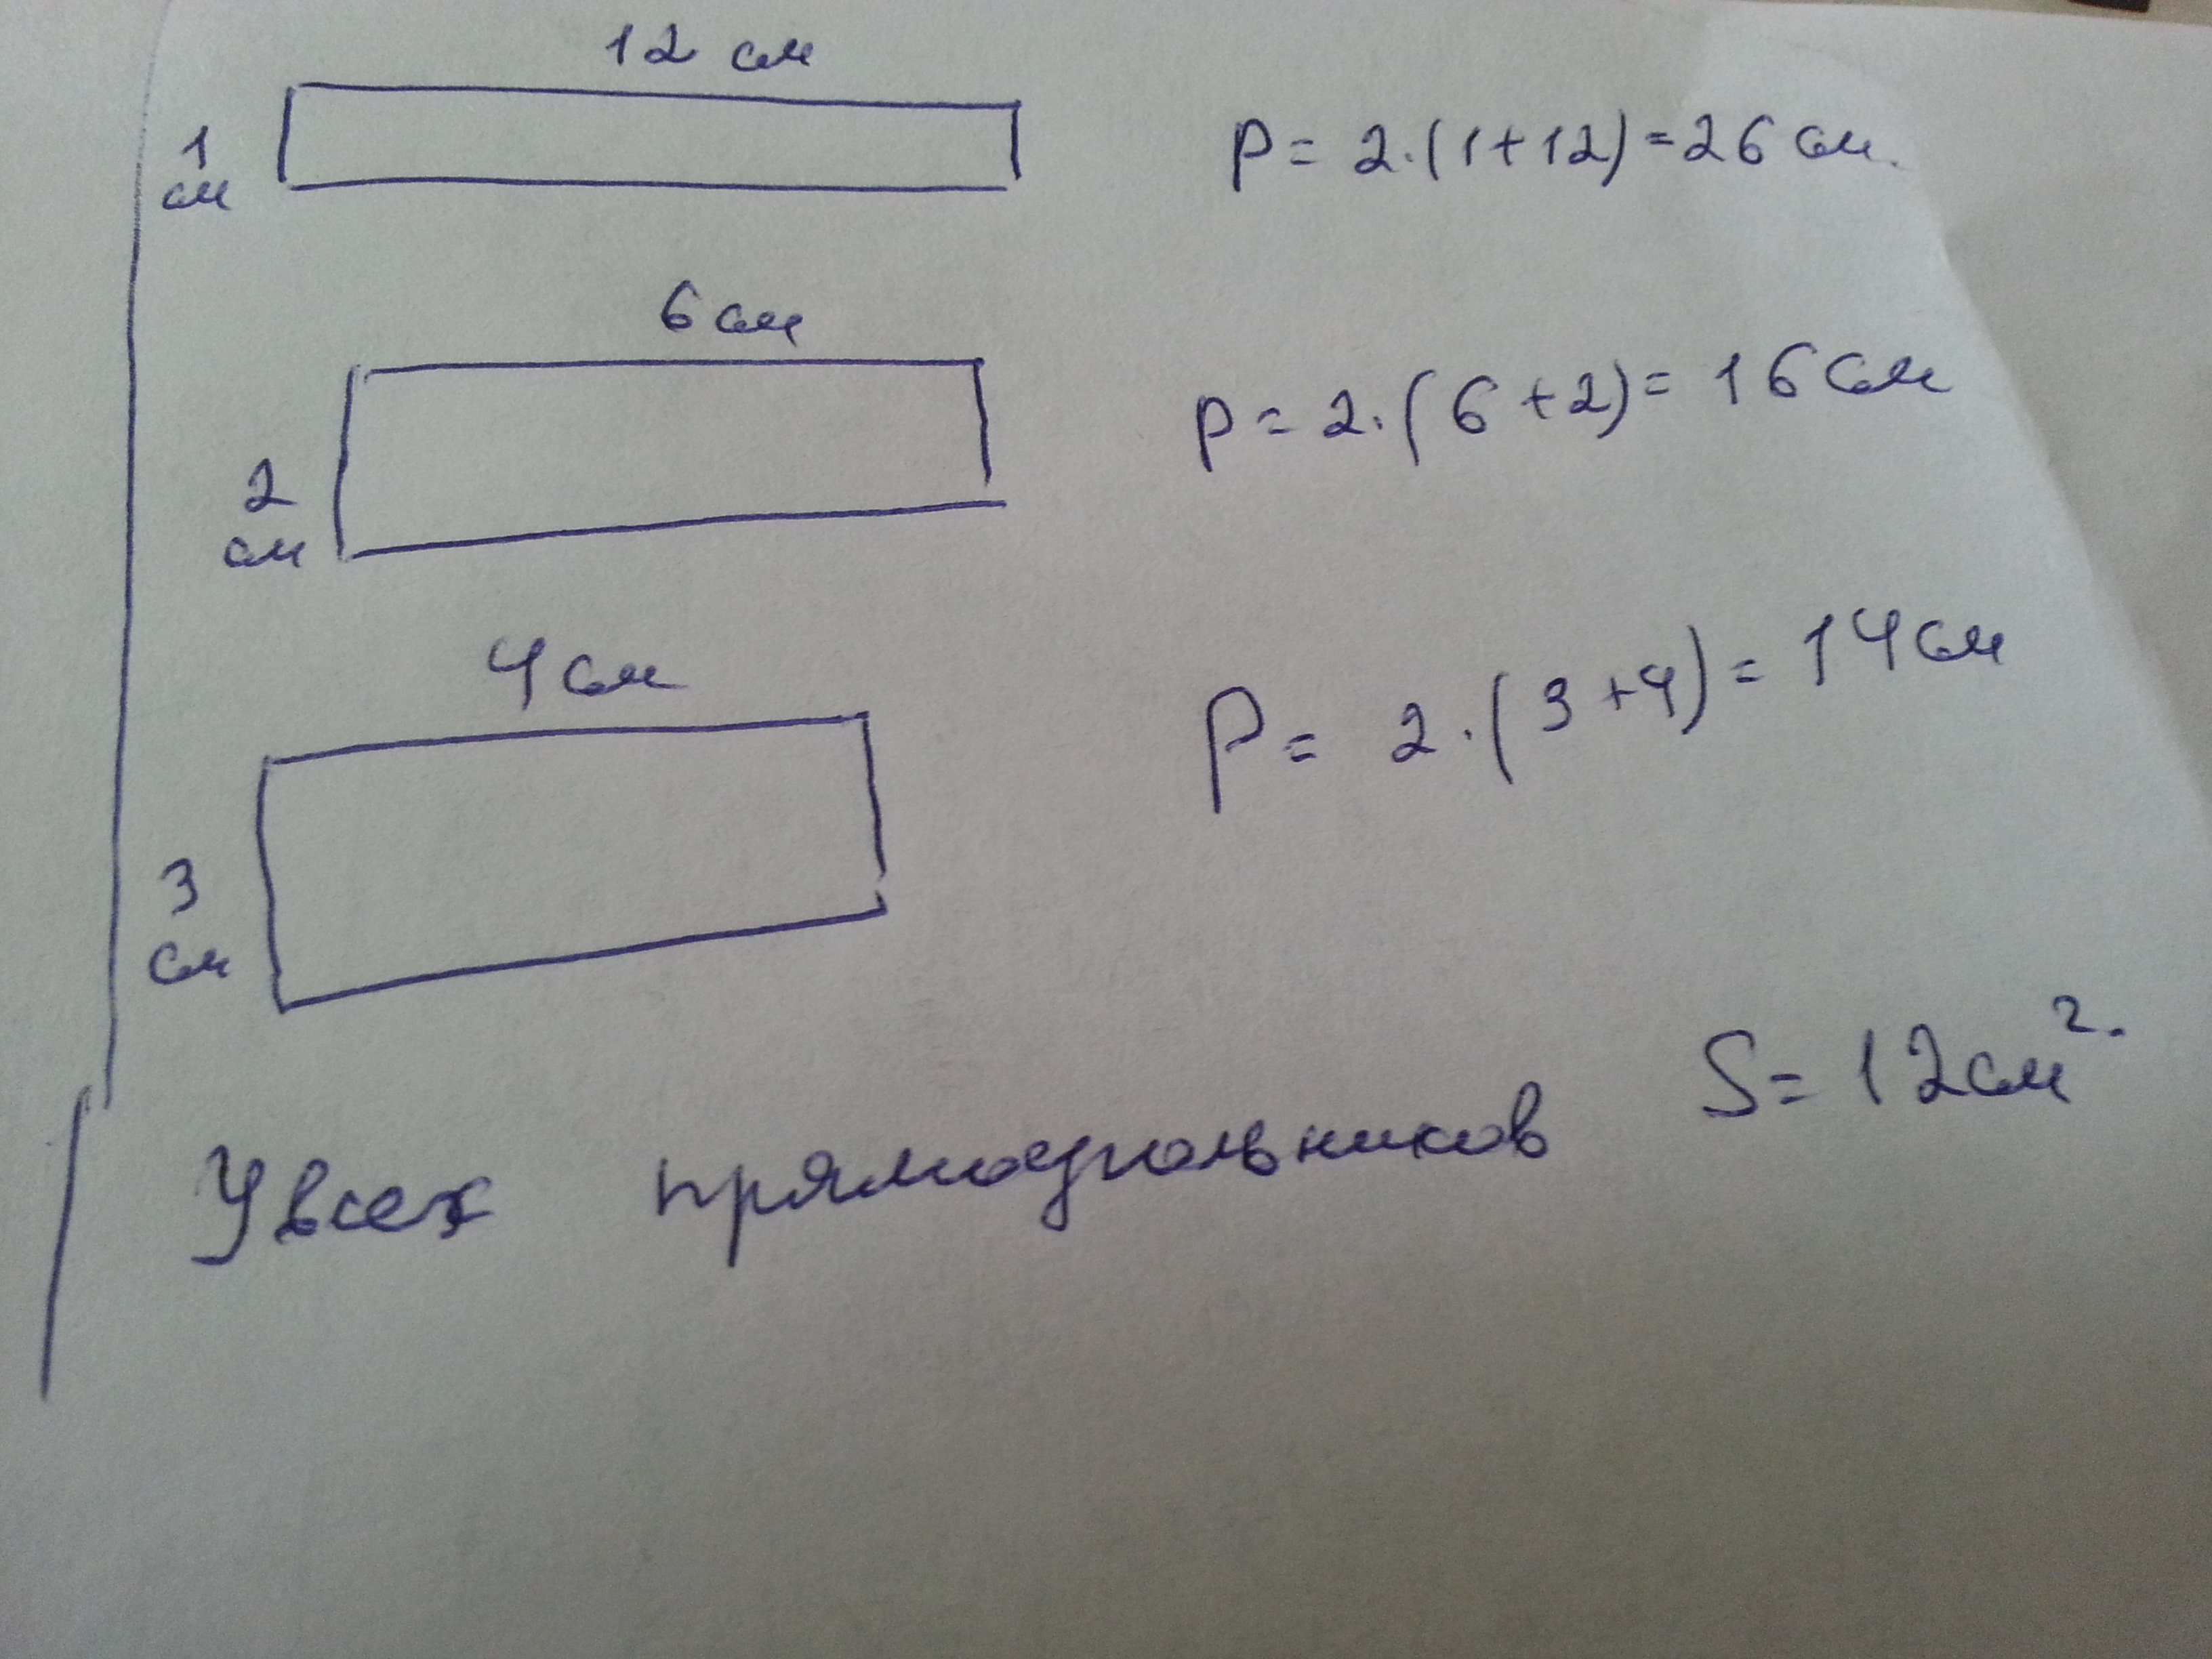 12 см
1
см
P = 2·(1+12) = 26 см.
6 см
2
см
P = 2·(6+2) = 16 см
4 см
3
см
P = 2·(3+4) = 14 см
У всех прямоугольников S = 12 см².